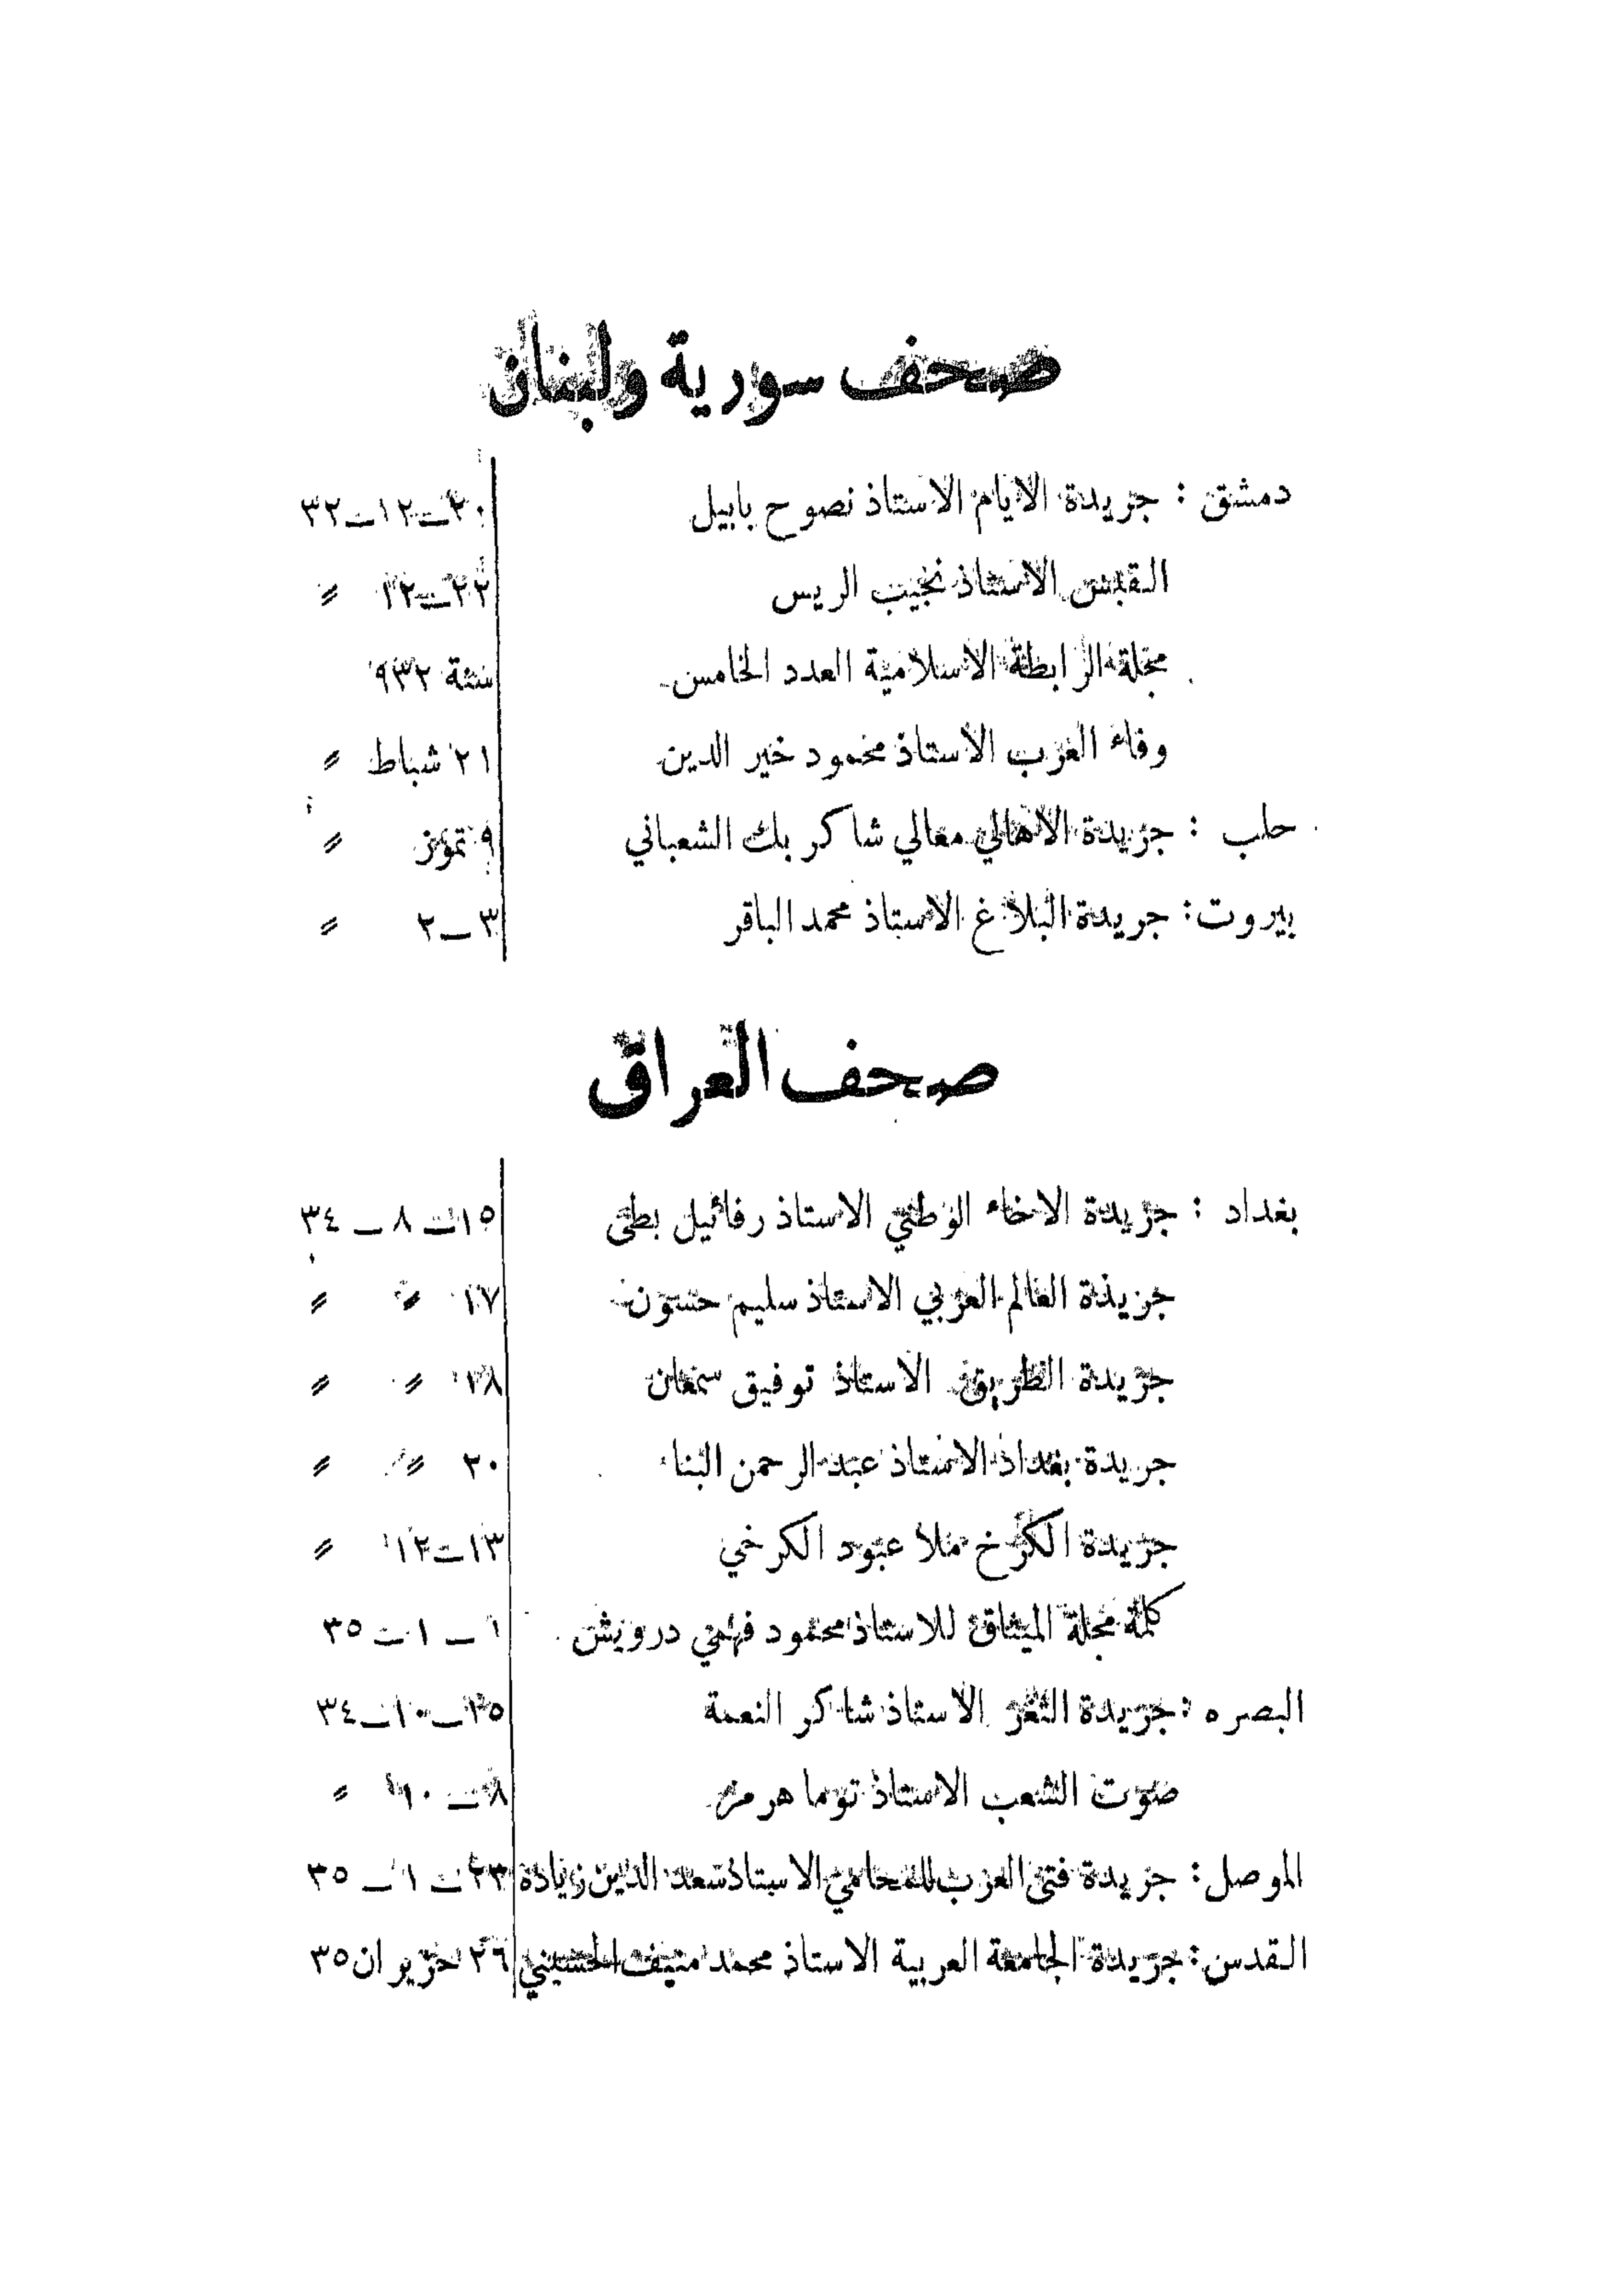 صحف سورية ولبنان
دمشق : جريدة الايام الاستاذ نصوح بابيل ٢٠–١٢–٣٢
القبس الاستاذ نجيب الريس ٢٢–١٢ 〃
مجلة الرابطة الاسلامية العدد الخامس سنة ٩٣٢
وفاء العرب الاستاذ محمود خير الدين ٢١ شباط 〃
حلب : جريدة الاهالي معالي شاكر بك الشعباني ٩ تموز 〃
بيروت : جريدة البلاغ الاستاذ محمد الباقر ٣–٢ 〃
صحف العراق
بغداد : جريدة الاخاء الوطني الاستاذ رفائيل بطى ١٥–٨–٣٤
جريدة العالم العربي الاستاذ سليم حسون ١٧ 〃 〃
جريدة الطريق الاستاذ توفيق سمعان ١٨ 〃 〃
جريدة بغداد الاستاذ عبد الرحمن البناء ٢٠ 〃 〃
جريدة الكرخ ملا عبود الكرخي ١٣–١٢ 〃
كلمة مجلة الميثاق للاستاذ محمود فهمي درويش ١–١–٣٥
البصره : جريدة الثغر الاستاذ شاكر النعمة ٢٥–١٠–٣٤
صوت الشعب الاستاذ توما هرمز ٨–١٠ 〃
الموصل : جريدة فتى العرب للمحامي الاستاذ سعد الدين زيادة ٢٣–١–٣٥
القدس : جريدة الجامعة العربية الاستاذ محمد منيف الحسيني ٢٦ حزيران ٣٥